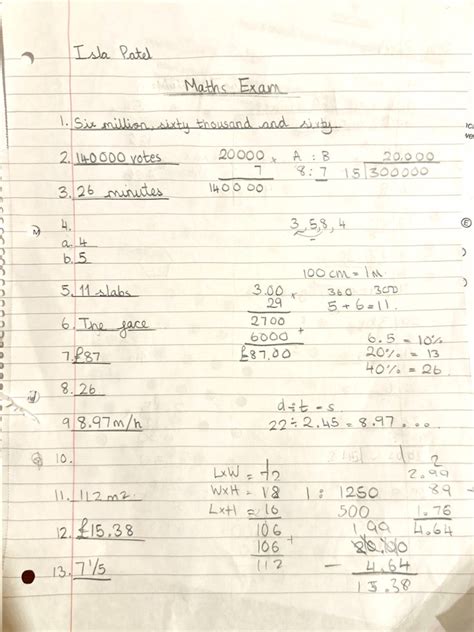 Isla Patel
Maths Exam
1. Six million, sixty thousand and sixty
2. 140000 votes 20000 x A : B 20,000
7 8 : 7 15 300000
3. 26 minutes 140000
4. 3, 5, 8, 4
a. 4
b. 5
100cm = 1M
5. 11 slabs 3.00 x 360 300
29 5 + 6 = 11
2700
6. The face 6000 +
£87.00 6.5 = 10%
7. £87 20% = 13
40% = 26
8. 26
d ÷ t = s
9 8.97m/h 22 ÷ 2.45 = 8.97 ....
10.
LxW = 72 2.99
WxH = 18 1 : 1250 89
11. 112 m2 LxH = 16 500 1.76
106 4.64
12. £15.38 106 +
112 - 4.64
13. 7 1/5 15.38